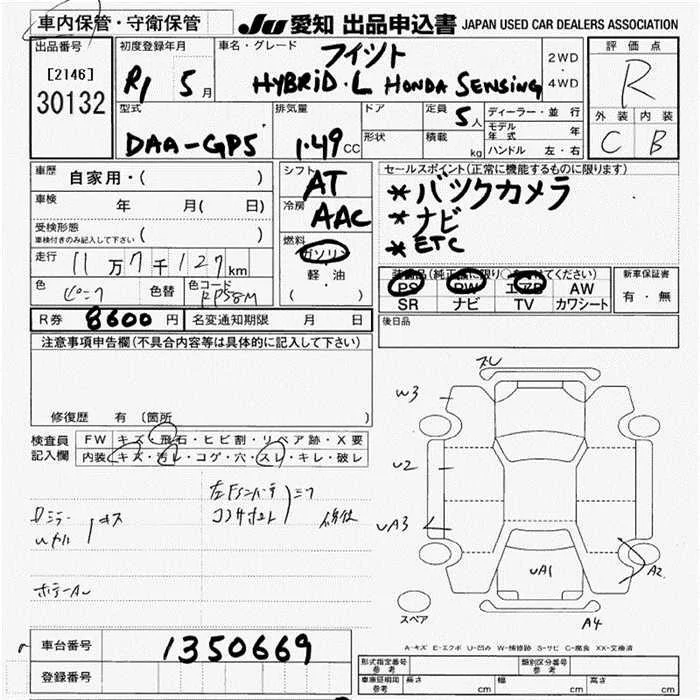 車内保管・守衛保管
JU 愛知 出品申込書 JAPAN USED CAR DEALERS ASSOCIATION
出品番号
[2146]
30132
初度登録年月
R1 5月
車名・グレード
フィット
HYBRID・L HONDA SENSING
2WD
・
4WD
評価点
R
外装 内装
C B
型式
DAA-GP5
排気量
1.49 CC
ドア
形状
定員 5人
積載 kg
ディーラー・並行
モデル年式 年
ハンドル 左・右
車歴
自家用・( )
車検 年 月( 日)
受検形態
車検付きのみ記入して下さい ( )
走行 11万7千127km
色 ピンク 色替 色コード RP58M
シフト AT
冷房 AAC
燃料
ガソリン
軽・油
( )
セールスポイント(正常に機能するものに限ります)
*バックカメラ
*ナビ
*ETC
PS PW エアB AW
SR ナビ TV カワシート
新車保証書
有・無
R券 8600円 名変通知期限 月 日
後日品
注意事項申告欄(不具合内容等は具体的に記入して下さい)
修復歴 有 (箇所 )
検査員記入欄
FW キズ・飛石・ヒビ割・リペア跡・X要
内装 キズ・汚レ・コゲ・穴・スレ・キレ・破レ
ズレ
W3
U2
UA3
UA1
A2
A4
スペア
キズ
A-キズ E-エクボ U-凹み W-補修跡 S-サビ C-腐食 XX-交換済
車台番号 1350669
登録番号
型式指定番号
参考
類別区分番号
参考
車庫証明用
参考
長さ cm
幅 cm
高さ cm